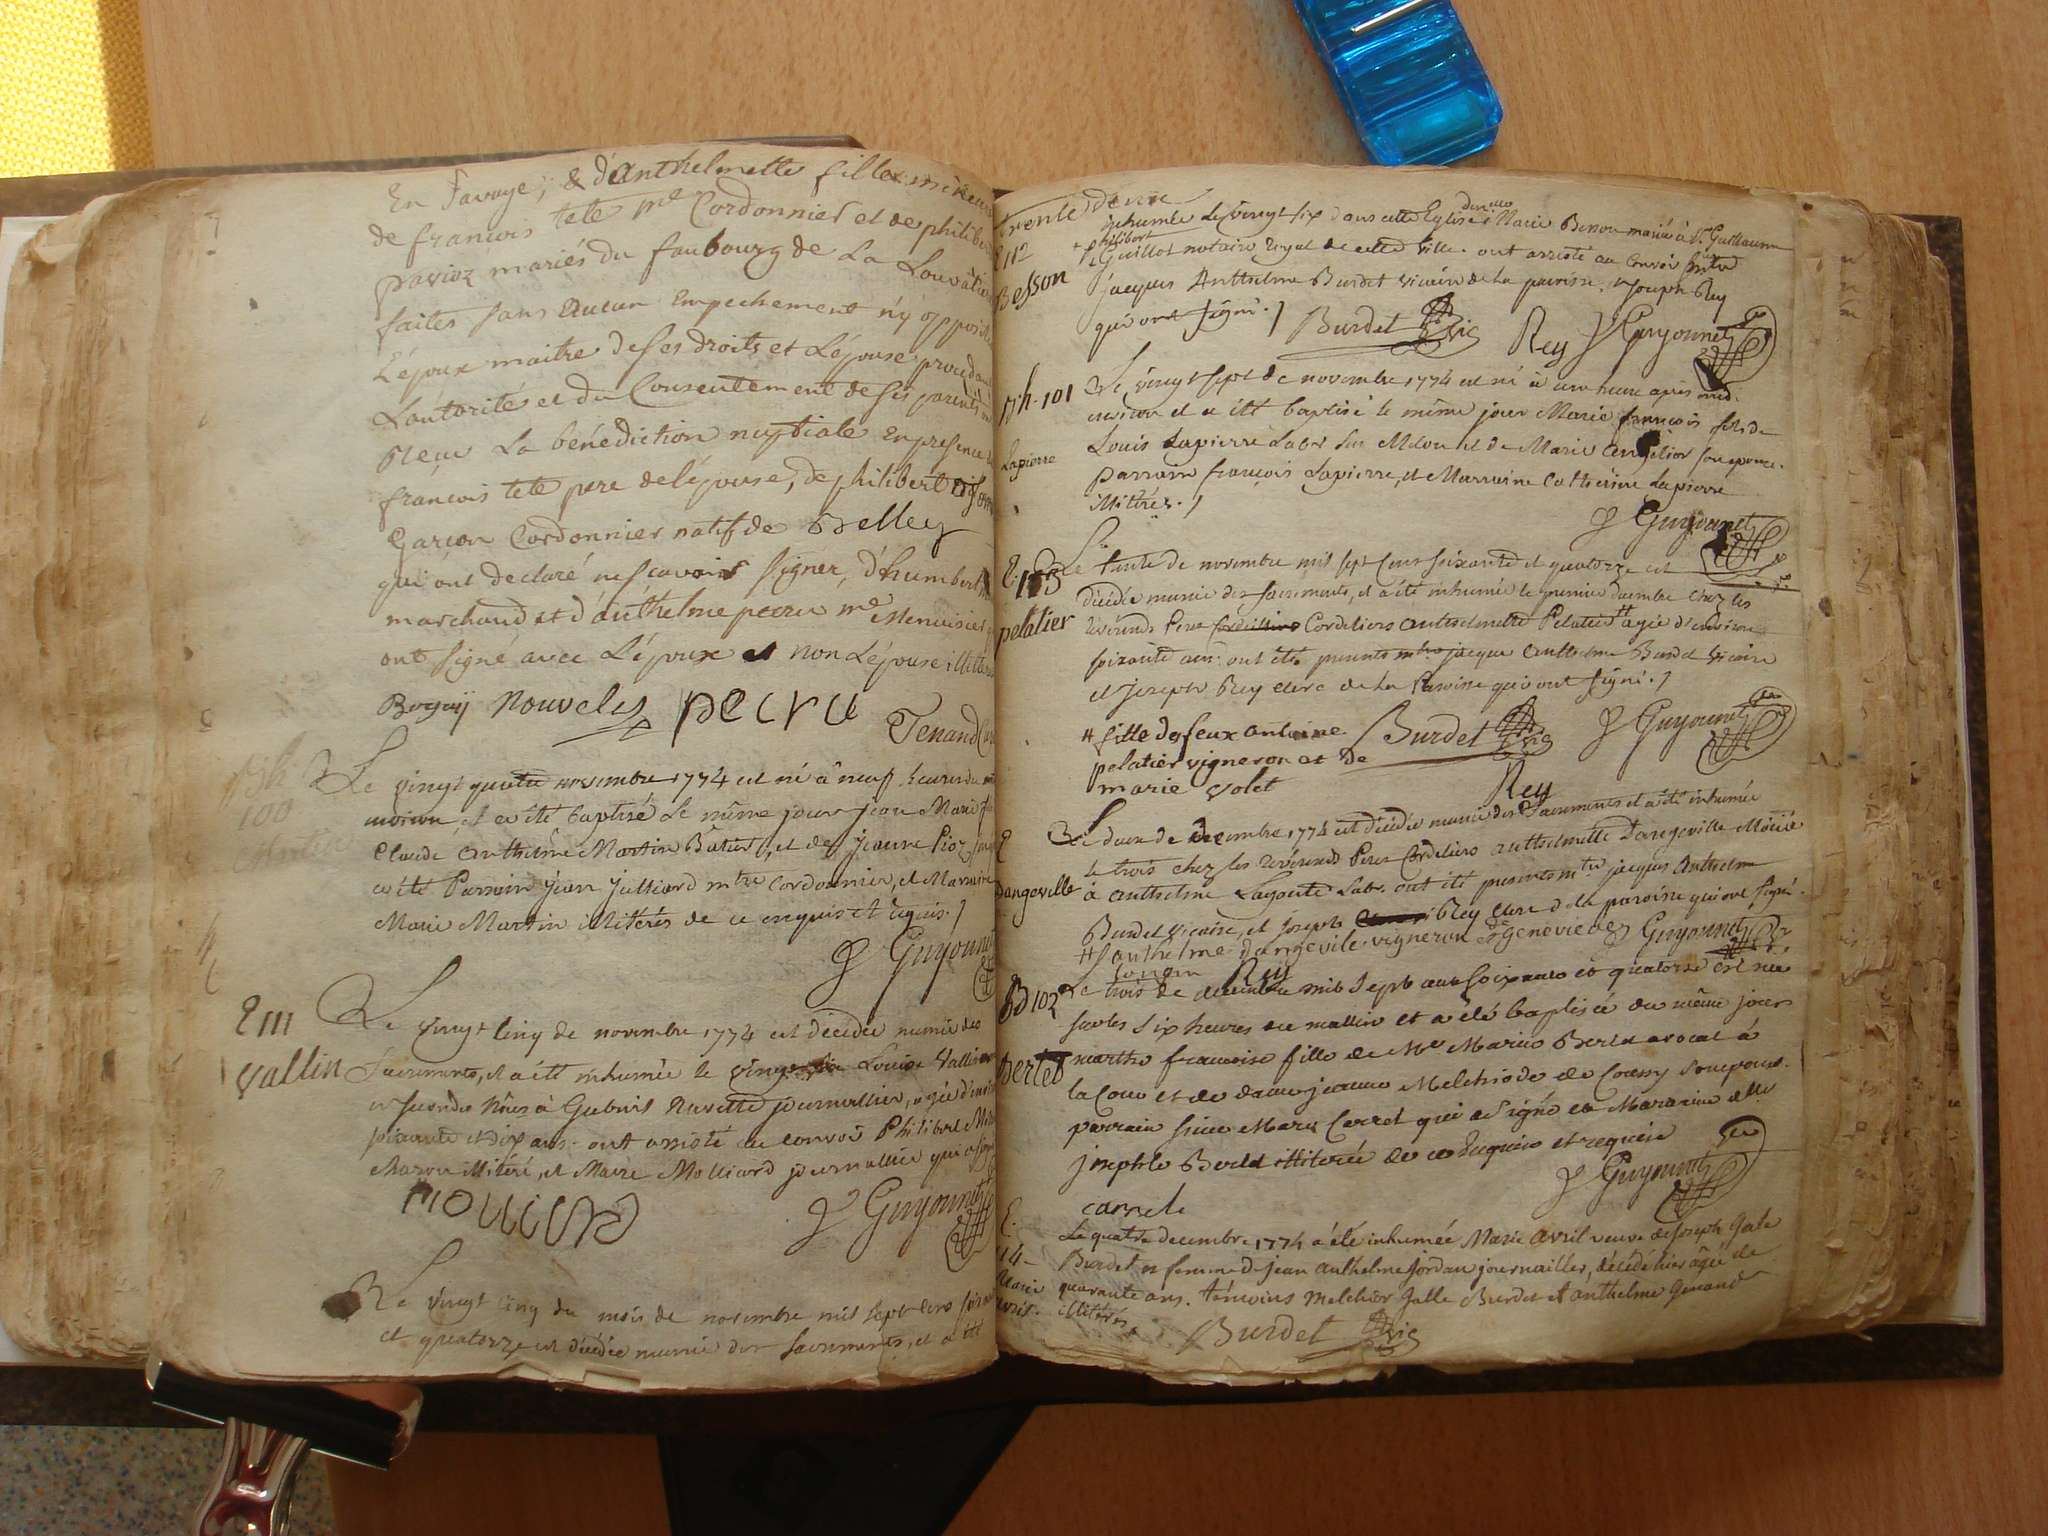 En Savoye, & d'Anthelmette fille mineure
de francois tete me Cordonnier et de philiber
pavioz mariés du faubourg de La Louvatiere
faites sans aucun Empechement n'y opposition
L'époux maitre de ses droits et L'épouse procedant
L'autorité et du Consentement de ses parents
Reçu La bénediction nuptiale En presence de
francois tete pere de l'épouse, de philibert
Garçon Cordonnier natif de Belley
qui ont declaré ne sçavoir signer, d'humbert
marchand et d'anthelme pecru me Menuisier
ont signé avec L'époux et non L'épouse illitterée
Boguij Nouveles pecru
Tenand Curé
bh
100
Martin
Le vingt quatre novembre 1774 est né à neuf heures du
environ, et a été baptisé le même jour jean Marie fils
Claude Anthelme Martin Batier, et de jeanne Pioz
a été Parrain jean julliard mtre cordonnier, et Marraine
Marie Martin illitérés de ce enquis et requis.
J Guyonnet
E 111
vallin
Le vingt cinq de novembre 1774 est décédée munie des
Sacrements, et a été inhumée le vingt six Louise Vallin
en secondes Nôces à Gabriel Navette journallier, agée d'environ
soixante et dix ans. ont assisté au convoi Philibert
Maron illitéré, et Marie Molliard journallier qui a signé
J Guyonnet
Le vingt cinq du mois de novembre mil sept cens soixante
et quatorze est décédée munie des sacrements, et a été
trente deux
E 112
Besson
inhumée le vingt six dans cette Eglise demlle Marie Besson mariée à Sr Guillaume
philibert
Guillot notaire royal de cette ville. ont assisté au convoi Mtre
jacques Anthelme Burdet vicaire de la paroisse, et joseph Rey
qui ont signé.
Burdet vic Rey J Guyonnet
bh. 101
Lapierre
Le vingt sept de novembre 1774 est né à une heure après midi
environ et a été baptisé le même jour Marie françois fils de
Louis Lapierre Labr sur Melon et de Marie Angelier son epouse.
Parrain françois Lapierre, et Marraine Catherine Lapierre
illittérés.
J Guyonnet
E. 113
pelatier
Le trente de novembre mil sept cens soixante et quatorze est
décédée munie des sacrements, et a été inhumée le premier decembre chez les
révérends Peres Cordeliers Anthelmette Pelatier # agée d'environ
soixante ans. ont été presents mtre jacques Anthelme Burdet vicaire
et joseph Rey clerc de la Paroisse qui ont signé.
# fille de feux antoine
pelatier vigneron et de
marie volet
Burdet vic J Guyonnet
Rey
E
Dangeville
Le deux de decembre 1774 est décédée munie des Sacrements et a été inhumée
le trois chez les révérends Peres Cordeliers Anthelmette Dangeville Mariée
à Anthelme Lagoute Labr. ont été presents mtre jacques Anthelme
Burdet vicaire, et joseph Rey clerc de la paroisse qui ont signé.
# d'anthelme dangevile vigneron et de genevieve J Guyonnet
Rey
BD 102
Bertet
Le trois de decembre mil sept cent soixante et quatorze est née
sur les six heures du mattin et a été baptisée du même jour
marthe francoise fille de Me Marin Bertet avocat à
la Cour et de dame jeanne Melchiode de Cossy son epouse.
parrain sieur Marc Carrel qui a signé et Maraine dlle
josephte Bertet illiterée de ce Enquise et requise
J Guyonnet
carrel
E.
114
Marie
avril.
Le quatre decembre 1774 a été inhumée Marie Avril veuve de joseph Galle
Burdet et femme de jean Anthelme jordan journailler, décédée hier agée de
quarante ans. témoins Melchior Galle Burdet et Anthelme Genand
illittrés
Burdet vic